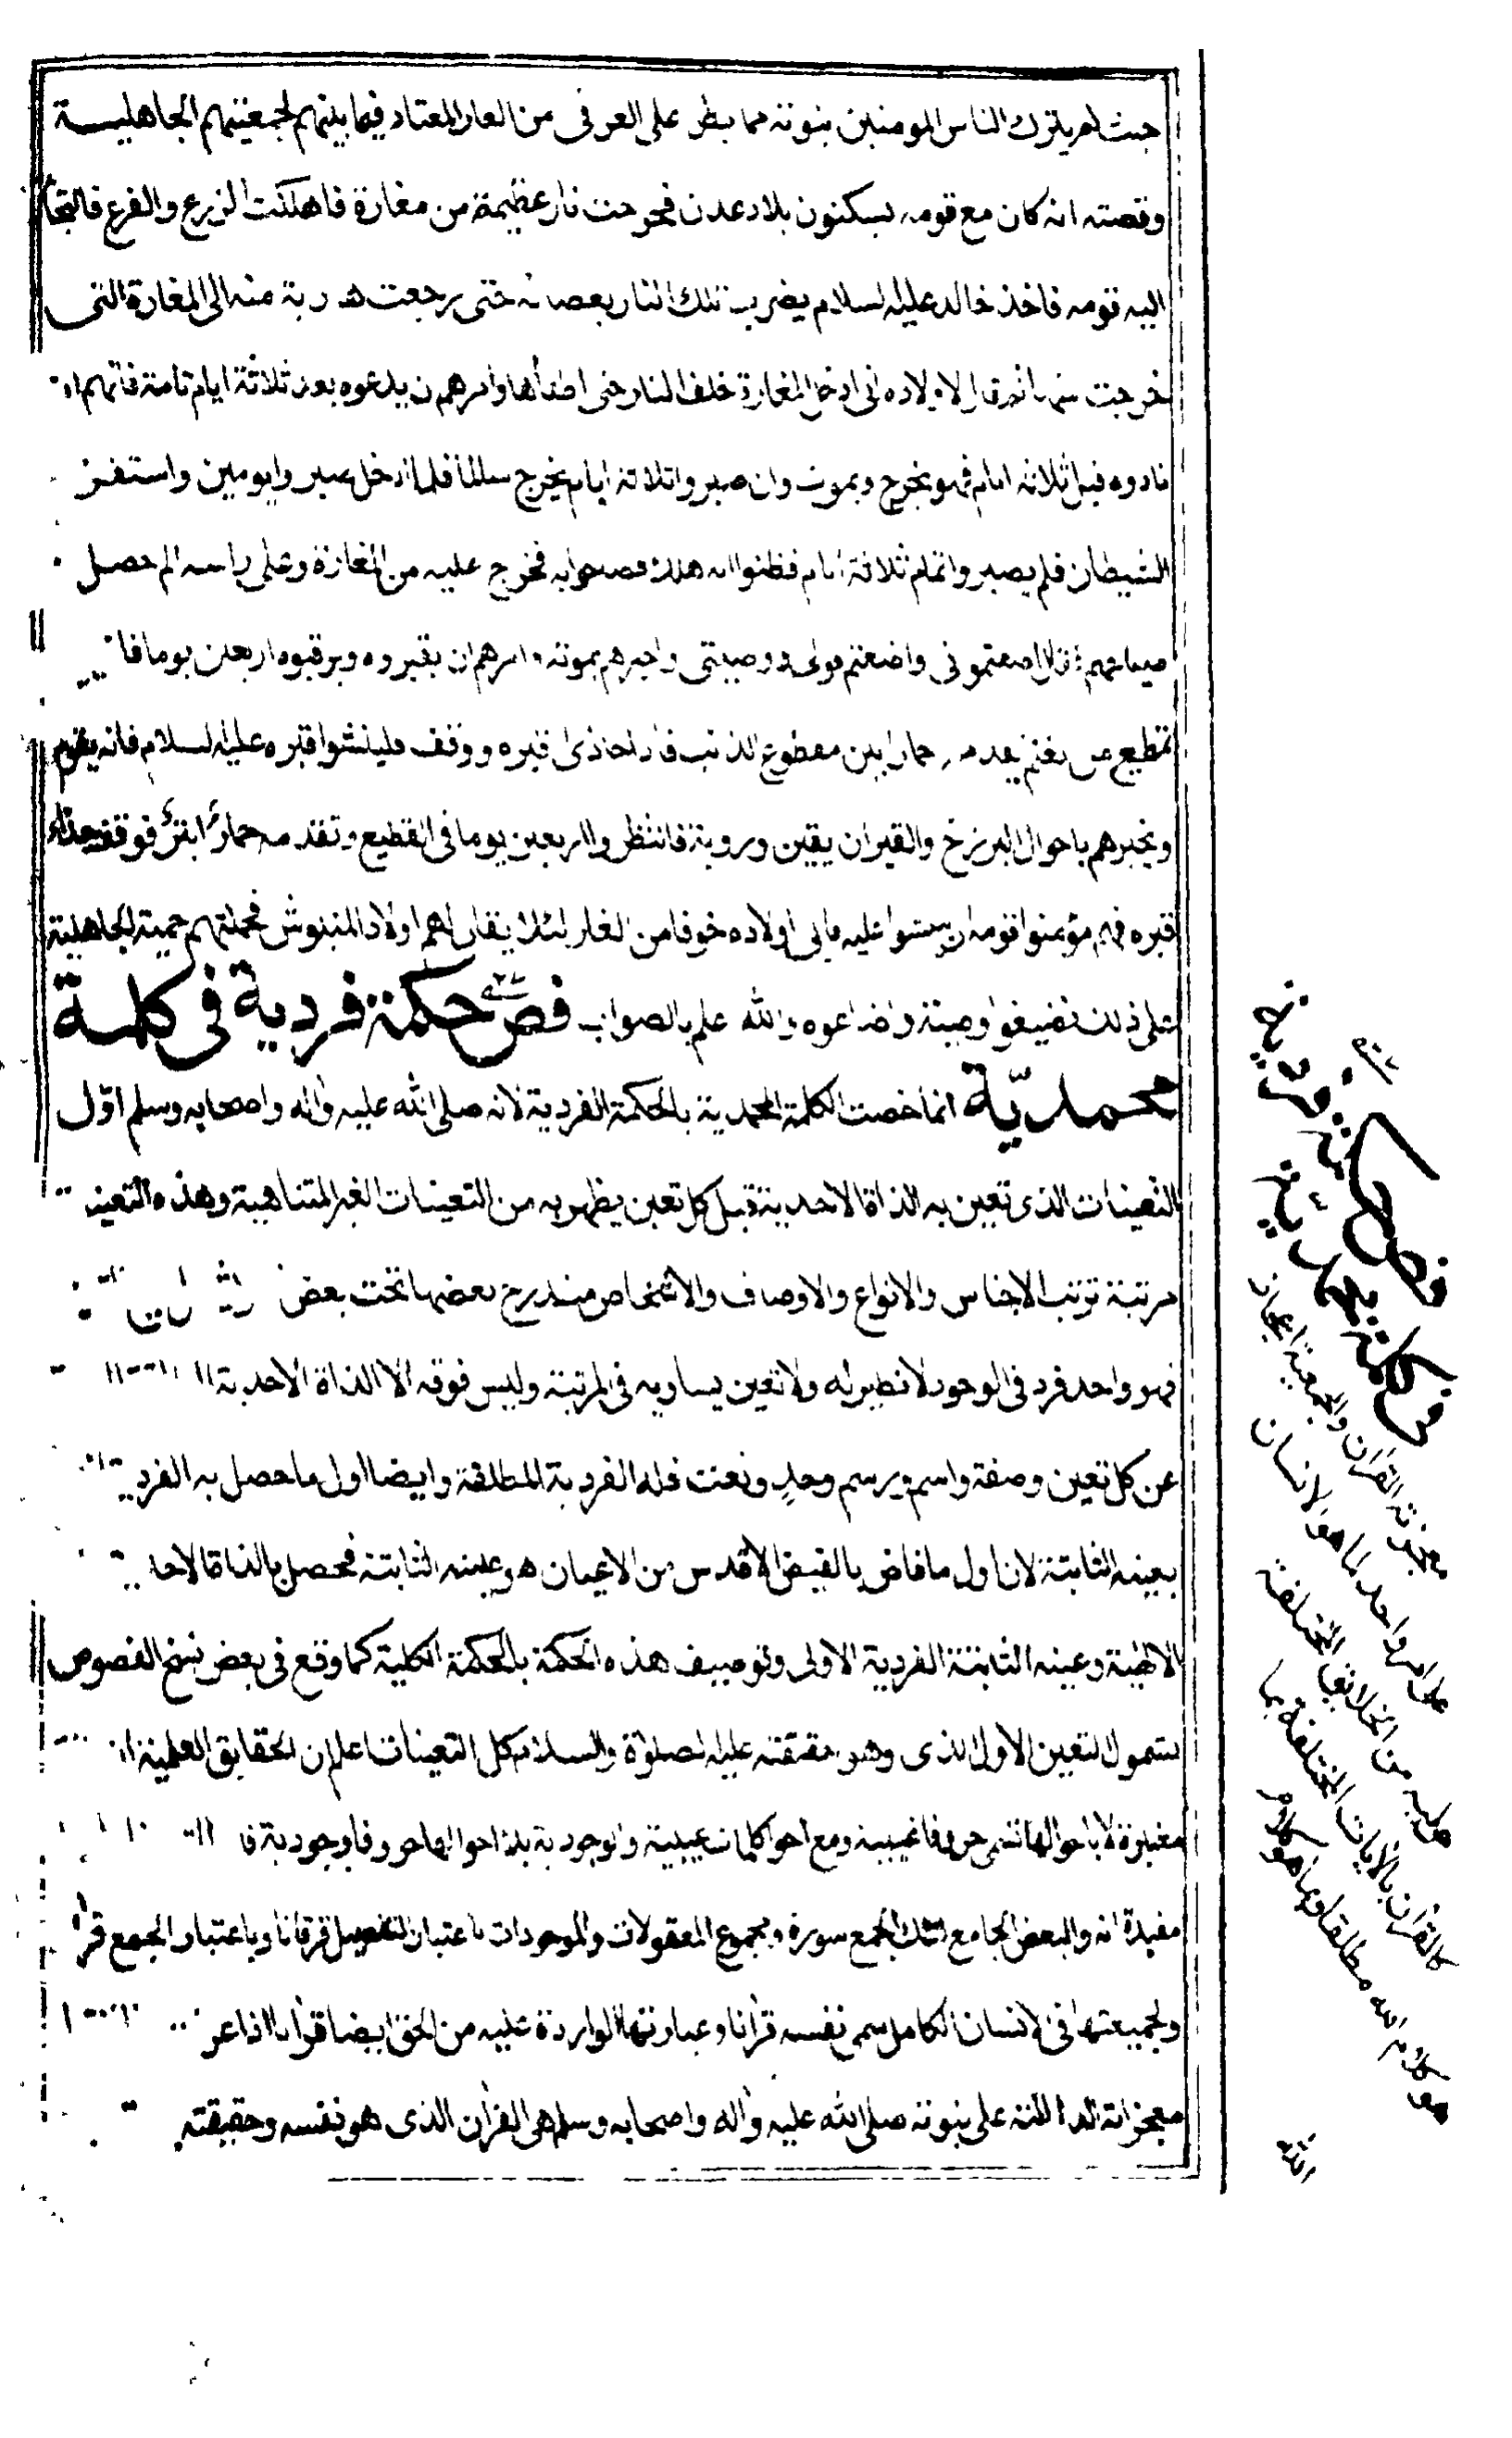 حيث لم يترك الناس المومنين بنبوته مما يطر على العرفى من العار المعتاد فيما بينهم لجمعيتهم الجاهلية
وقصته انه كان مع قومه يسكنون بلاد عدن فخرجت نار عظيمة من مغارة فاهلكت الزرع والفرع فالتجأ
اليه قومه فاخذ خالد عليه السلام يضرب تلك النار بعصاه حتى رجعت هاربة منه الى المغارة التى
خرجت منها ثم قال لاولاده انى ادخل المغارة خلف النار حتى اطفأها وامرهم ان يدعوه بعد ثلاثة ايام تامة فانهم ان
نادوه قبل ثلاثة ايام فهو يخرج ويموت وان صبروا ثلاثة ايام يخرج سالما فلما دخل صبروا يومين واستفز
الشيطان فلم يصبروا تمام ثلاثة ايام فظنوا انه هلك فصحوا به فخرج عليه من المغارة وعلى راسه الم حصل
من صياحهم فقال اضعتمونى واضعتم قولى ووصيتى واخبرهم بموته وامرهم ان يقبروه ويرقبوه اربعين يوما فا
قطيع من غنم يقدمه حمار ابتر مقطوع الذنب فاذا حاذى قبره ووقف فلينبشوا قبره عليه السلام فانه يقوم
ويخبرهم باحوال البرزخ والقبر ان يقين وروية فانتظروا اربعين يوما فى القطيع وتقدمه حمار ابتر فوقف حذاء
قبره فهم مؤمنوا قومه ان ينبشوا عليه فابى اولاده خوفا من العار لئلا يقال لهم اولاد المنبوش فحملتهم حمية الجاهلية
على ذلك فضيعوا وصيته واضاعوه والله علم بالصواب فص حكمة فردية فى كلمة
محمديّة انما خصت الكلمة المحمدية بالحكمة الفردية لانه صلى الله عليه واله واصحابه وسلم اوّل
التعينات الذى تعين به الذاة الاحدية قبل كل تعين يظهر به من التعينات الغير المتناهية وهذه التعينات
مرتبة ترتب الاجناس والانواع والاوصاف والاشخاص مندرج بعضها تحت بعض
فهو واحد فرد فى الوجود لا نظير له ولا تعين يساويه فى المرتبة وليس فوقه الا الذاة الاحدية
عن كل تعين وصفة واسم ورسم وحد ونعت فله الفردية المطلقة وايضا اول ما حصل به الفردية
بعينه الثابتة لان اول ما فاض بالفيض الاقدس من الاعيان هو عينه الثابتة فحصل بالذاة الاحدية
الالهية وعينه الثابتة الفردية الاولى وتوصيف هذه الحكمة بالحكمة الكلية كما وقع فى بعض نسخ الفصوص
لشمول التعين الاول الذى وهو حقيقته عليه الصلوة والسلام كل التعينات اعلم ان الحقايق العلمية
معتبرة لا باحوالها تسمى حروفا غيبية ومع احوالها كلمات غيبية والوجودية بلا احوالها حروفا وجودية
مفيدة اية والبعض الجامع لتلك الجمع سورة ومجموع المعقولات والموجودات باعتبار التفصيل فرقانا وباعتبار الجمع قرآنا
ولجميعتها فى الانسان الكامل سمى نفسه قرآنا وعبارتها الواردة عليه من الحق ايضا قرآنا
معجزاته الدالة على نبوته صلى الله عليه واله واصحابه وسلم هى القرآن الذى هو نفسه وحقيقته
فص حكمة فردية
فى كلمة محمدية
معجزته القرآن والجمعية اعجاز
على امر واحد لما هو الانسان
عليه من الحلايق المختلفة
كالقرآن بالايات المختلفة بما
هو كلام الله مطلقا وبما هو كلام
الله